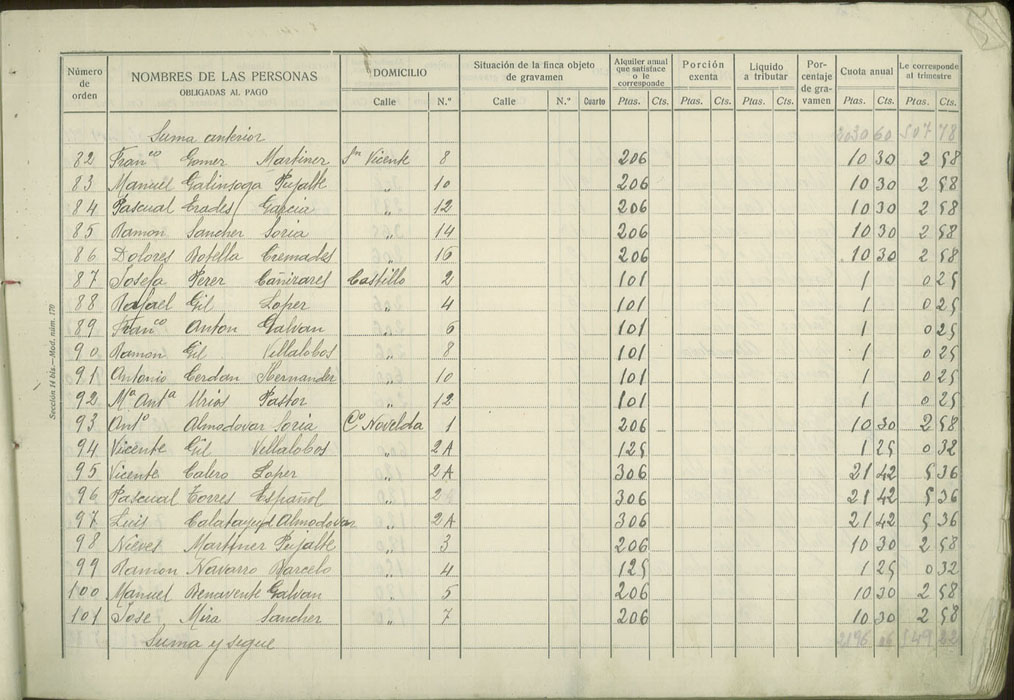 Número de orden | NOMBRES DE LAS PERSONAS OBLIGADAS AL PAGO | DOMICILIO | Situación de la finca objeto de gravamen | Alquiler anual que satisface o le corresponde | Porción exenta | Líquido a tributar | Porcentaje de gravamen | Cuota anual | Le corresponde al trimestre
Calle | N.º | Calle | N.º | Cuarto | Ptas. | Cts. | Ptas. | Cts. | Ptas. | Cts. | Ptas. | Cts. | Ptas. | Cts.
Suma anterior 2030 60 507 78
82 Franco Gomez Martinez Sn Vicente 8 206 10 30 2 58
83 Manuel Galinsoga Pujalte " 10 206 10 30 2 58
84 Pascual Erades Garcia " 12 206 10 30 2 58
85 Ramon Sanchez Soria " 14 206 10 30 2 58
86 Dolores Botella Cremades " 16 206 10 30 2 58
87 Josefa Perez Cañizares Castillo 2 101 1 0 25
88 Rafael Gil Lopez " 4 101 1 0 25
89 Franco Anton Galvan " 6 101 1 0 25
90 Ramon Gil Villalobos " 8 101 1 0 25
91 Antonio Cerdan Hernandez " 10 101 1 0 25
92 Mª Antª Urios Pastor " 12 101 1 0 25
93 Antº Almodovar Soria Cº Novelda 1 206 10 30 2 58
94 Vicente Gil Villalobos " 2A 125 1 25 0 32
95 Vicente Calero Lopez " 2A 306 21 42 5 36
96 Pascual Torres Español " 2 306 21 42 5 36
97 Luis Calatayud Almodovar " 2A 306 21 42 5 36
98 Nieves Martinez Pujalte " 3 206 10 30 2 58
99 Ramon Navarro Barcelo " 4 125 1 25 0 32
100 Manuel Benavente Galvan " 5 206 10 30 2 58
101 Jose Mira Sanchez " 7 206 10 30 2 58
Suma y sigue 2196 549
Sección 14 bis.—Mod. núm. 170